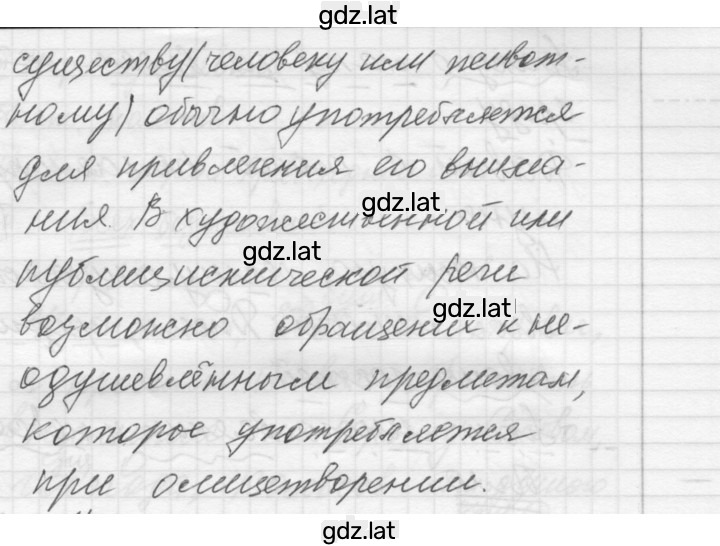 gdz.lat
существу (человеку или живот-
ному) обычно употребляется
для привлечения его внима-
ния. В художественной или
gdz.lat
gdz.lat
публицистической речи
gdz.lat
возможно обращение к не-
одушевлённым предметам,
которое употребляется
при олицетворении.
gdz.lat